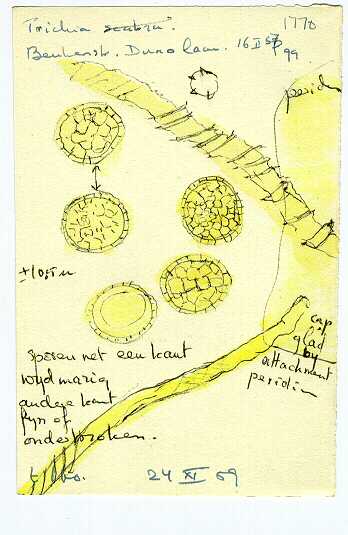 Trichia scabra. 1770
Beukenstr. Duno laan. 16 II 57/99
perid
±10,5 u
cap
glad
by
attachment
peridium
sporen net een kant
wydmazig
andere kant
fyn of
onderbroken.
24 XI 59